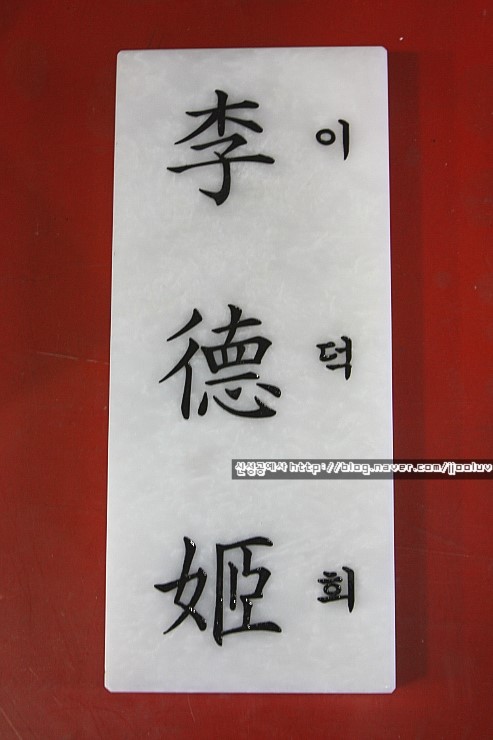 李 이
德 덕
신성공예사 http://blog.naver.com/jjooluv
姬 희